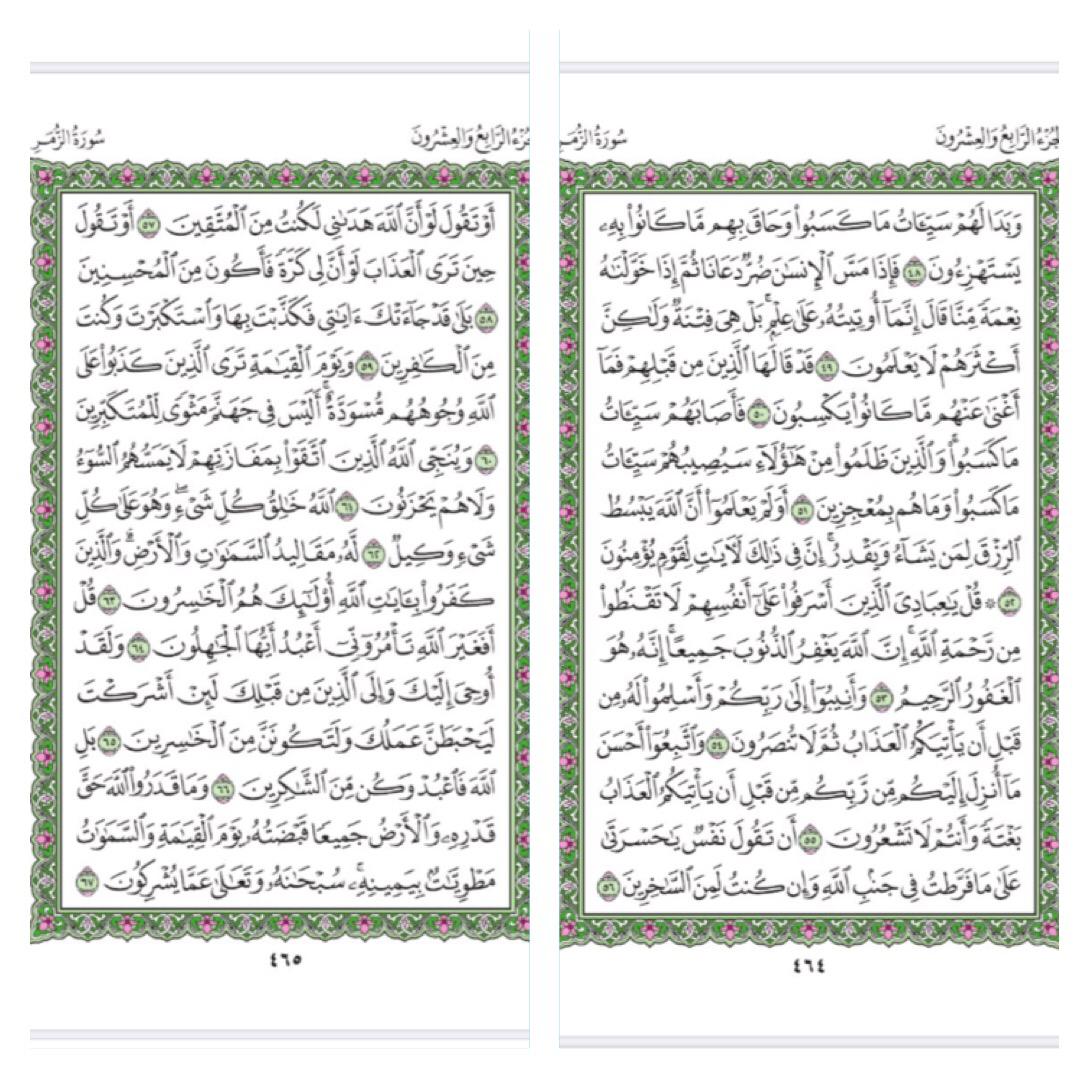 الجزء الرابع والعشرون
سورة الزمر
وَبَدَا لَهُمْ سَيِّـَٔاتُ مَا كَسَبُوا۟ وَحَاقَ بِهِم مَّا كَانُوا۟ بِهِۦ
يَسْتَهْزِءُونَ ٤٨ فَإِذَا مَسَّ ٱلْإِنسَـٰنَ ضُرٌّ دَعَانَا ثُمَّ إِذَا خَوَّلْنَـٰهُ
نِعْمَةً مِّنَّا قَالَ إِنَّمَآ أُوتِيتُهُۥ عَلَىٰ عِلْمٍۭ ۚ بَلْ هِىَ فِتْنَةٌ وَلَـٰكِنَّ
أَكْثَرَهُمْ لَا يَعْلَمُونَ ٤٩ قَدْ قَالَهَا ٱلَّذِينَ مِن قَبْلِهِمْ فَمَآ
أَغْنَىٰ عَنْهُم مَّا كَانُوا۟ يَكْسِبُونَ ٥٠ فَأَصَابَهُمْ سَيِّـَٔاتُ
مَا كَسَبُوا۟ ۚ وَٱلَّذِينَ ظَلَمُوا۟ مِنْ هَـٰٓؤُلَآءِ سَيُصِيبُهُمْ سَيِّـَٔاتُ
مَا كَسَبُوا۟ وَمَا هُم بِمُعْجِزِينَ ٥١ أَوَلَمْ يَعْلَمُوٓا۟ أَنَّ ٱللَّهَ يَبْسُطُ
ٱلرِّزْقَ لِمَن يَشَآءُ وَيَقْدِرُ ۚ إِنَّ فِى ذَٰلِكَ لَـَٔايَـٰتٍ لِّقَوْمٍ يُؤْمِنُونَ
٥٢ ۞ قُلْ يَـٰعِبَادِىَ ٱلَّذِينَ أَسْرَفُوا۟ عَلَىٰٓ أَنفُسِهِمْ لَا تَقْنَطُوا۟
مِن رَّحْمَةِ ٱللَّهِ ۚ إِنَّ ٱللَّهَ يَغْفِرُ ٱلذُّنُوبَ جَمِيعًا ۚ إِنَّهُۥ هُوَ
ٱلْغَفُورُ ٱلرَّحِيمُ ٥٣ وَأَنِيبُوٓا۟ إِلَىٰ رَبِّكُمْ وَأَسْلِمُوا۟ لَهُۥ مِن
قَبْلِ أَن يَأْتِيَكُمُ ٱلْعَذَابُ ثُمَّ لَا تُنصَرُونَ ٥٤ وَٱتَّبِعُوٓا۟ أَحْسَنَ
مَآ أُنزِلَ إِلَيْكُم مِّن رَّبِّكُم مِّن قَبْلِ أَن يَأْتِيَكُمُ ٱلْعَذَابُ
بَغْتَةً وَأَنتُمْ لَا تَشْعُرُونَ ٥٥ أَن تَقُولَ نَفْسٌ يَـٰحَسْرَتَىٰ
عَلَىٰ مَا فَرَّطتُ فِى جَنۢبِ ٱللَّهِ وَإِن كُنتُ لَمِنَ ٱلسَّـٰخِرِينَ ٥٦
٤٦٤
الجزء الرابع والعشرون
سورة الزمر
أَوْ تَقُولَ لَوْ أَنَّ ٱللَّهَ هَدَىٰنِى لَكُنتُ مِنَ ٱلْمُتَّقِينَ ٥٧ أَوْ تَقُولَ
حِينَ تَرَى ٱلْعَذَابَ لَوْ أَنَّ لِى كَرَّةً فَأَكُونَ مِنَ ٱلْمُحْسِنِينَ
٥٨ بَلَىٰ قَدْ جَآءَتْكَ ءَايَـٰتِى فَكَذَّبْتَ بِهَا وَٱسْتَكْبَرْتَ وَكُنتَ
مِنَ ٱلْكَـٰفِرِينَ ٥٩ وَيَوْمَ ٱلْقِيَـٰمَةِ تَرَى ٱلَّذِينَ كَذَبُوا۟ عَلَى
ٱللَّهِ وُجُوهُهُم مُّسْوَدَّةٌ ۚ أَلَيْسَ فِى جَهَنَّمَ مَثْوًى لِّلْمُتَكَبِّرِينَ
٦٠ وَيُنَجِّى ٱللَّهُ ٱلَّذِينَ ٱتَّقَوْا۟ بِمَفَازَتِهِمْ لَا يَمَسُّهُمُ ٱلسُّوٓءُ
وَلَا هُمْ يَحْزَنُونَ ٦١ ٱللَّهُ خَـٰلِقُ كُلِّ شَىْءٍ ۖ وَهُوَ عَلَىٰ كُلِّ
شَىْءٍ وَكِيلٌ ٦٢ لَّهُۥ مَقَالِيدُ ٱلسَّمَـٰوَٰتِ وَٱلْأَرْضِ ۗ وَٱلَّذِينَ
كَفَرُوا۟ بِـَٔايَـٰتِ ٱللَّهِ أُو۟لَـٰٓئِكَ هُمُ ٱلْخَـٰسِرُونَ ٦٣ قُلْ
أَفَغَيْرَ ٱللَّهِ تَأْمُرُوٓنِّىٓ أَعْبُدُ أَيُّهَا ٱلْجَـٰهِلُونَ ٦٤ وَلَقَدْ
أُوحِىَ إِلَيْكَ وَإِلَى ٱلَّذِينَ مِن قَبْلِكَ لَئِنْ أَشْرَكْتَ
لَيَحْبَطَنَّ عَمَلُكَ وَلَتَكُونَنَّ مِنَ ٱلْخَـٰسِرِينَ ٦٥ بَلِ
ٱللَّهَ فَٱعْبُدْ وَكُن مِّنَ ٱلشَّـٰكِرِينَ ٦٦ وَمَا قَدَرُوا۟ ٱللَّهَ حَقَّ
قَدْرِهِۦ وَٱلْأَرْضُ جَمِيعًا قَبْضَتُهُۥ يَوْمَ ٱلْقِيَـٰمَةِ وَٱلسَّمَـٰوَٰتُ
مَطْوِيَّـٰتٌۢ بِيَمِينِهِۦ ۚ سُبْحَـٰنَهُۥ وَتَعَـٰلَىٰ عَمَّا يُشْرِكُونَ ٦٧
٤٦٥